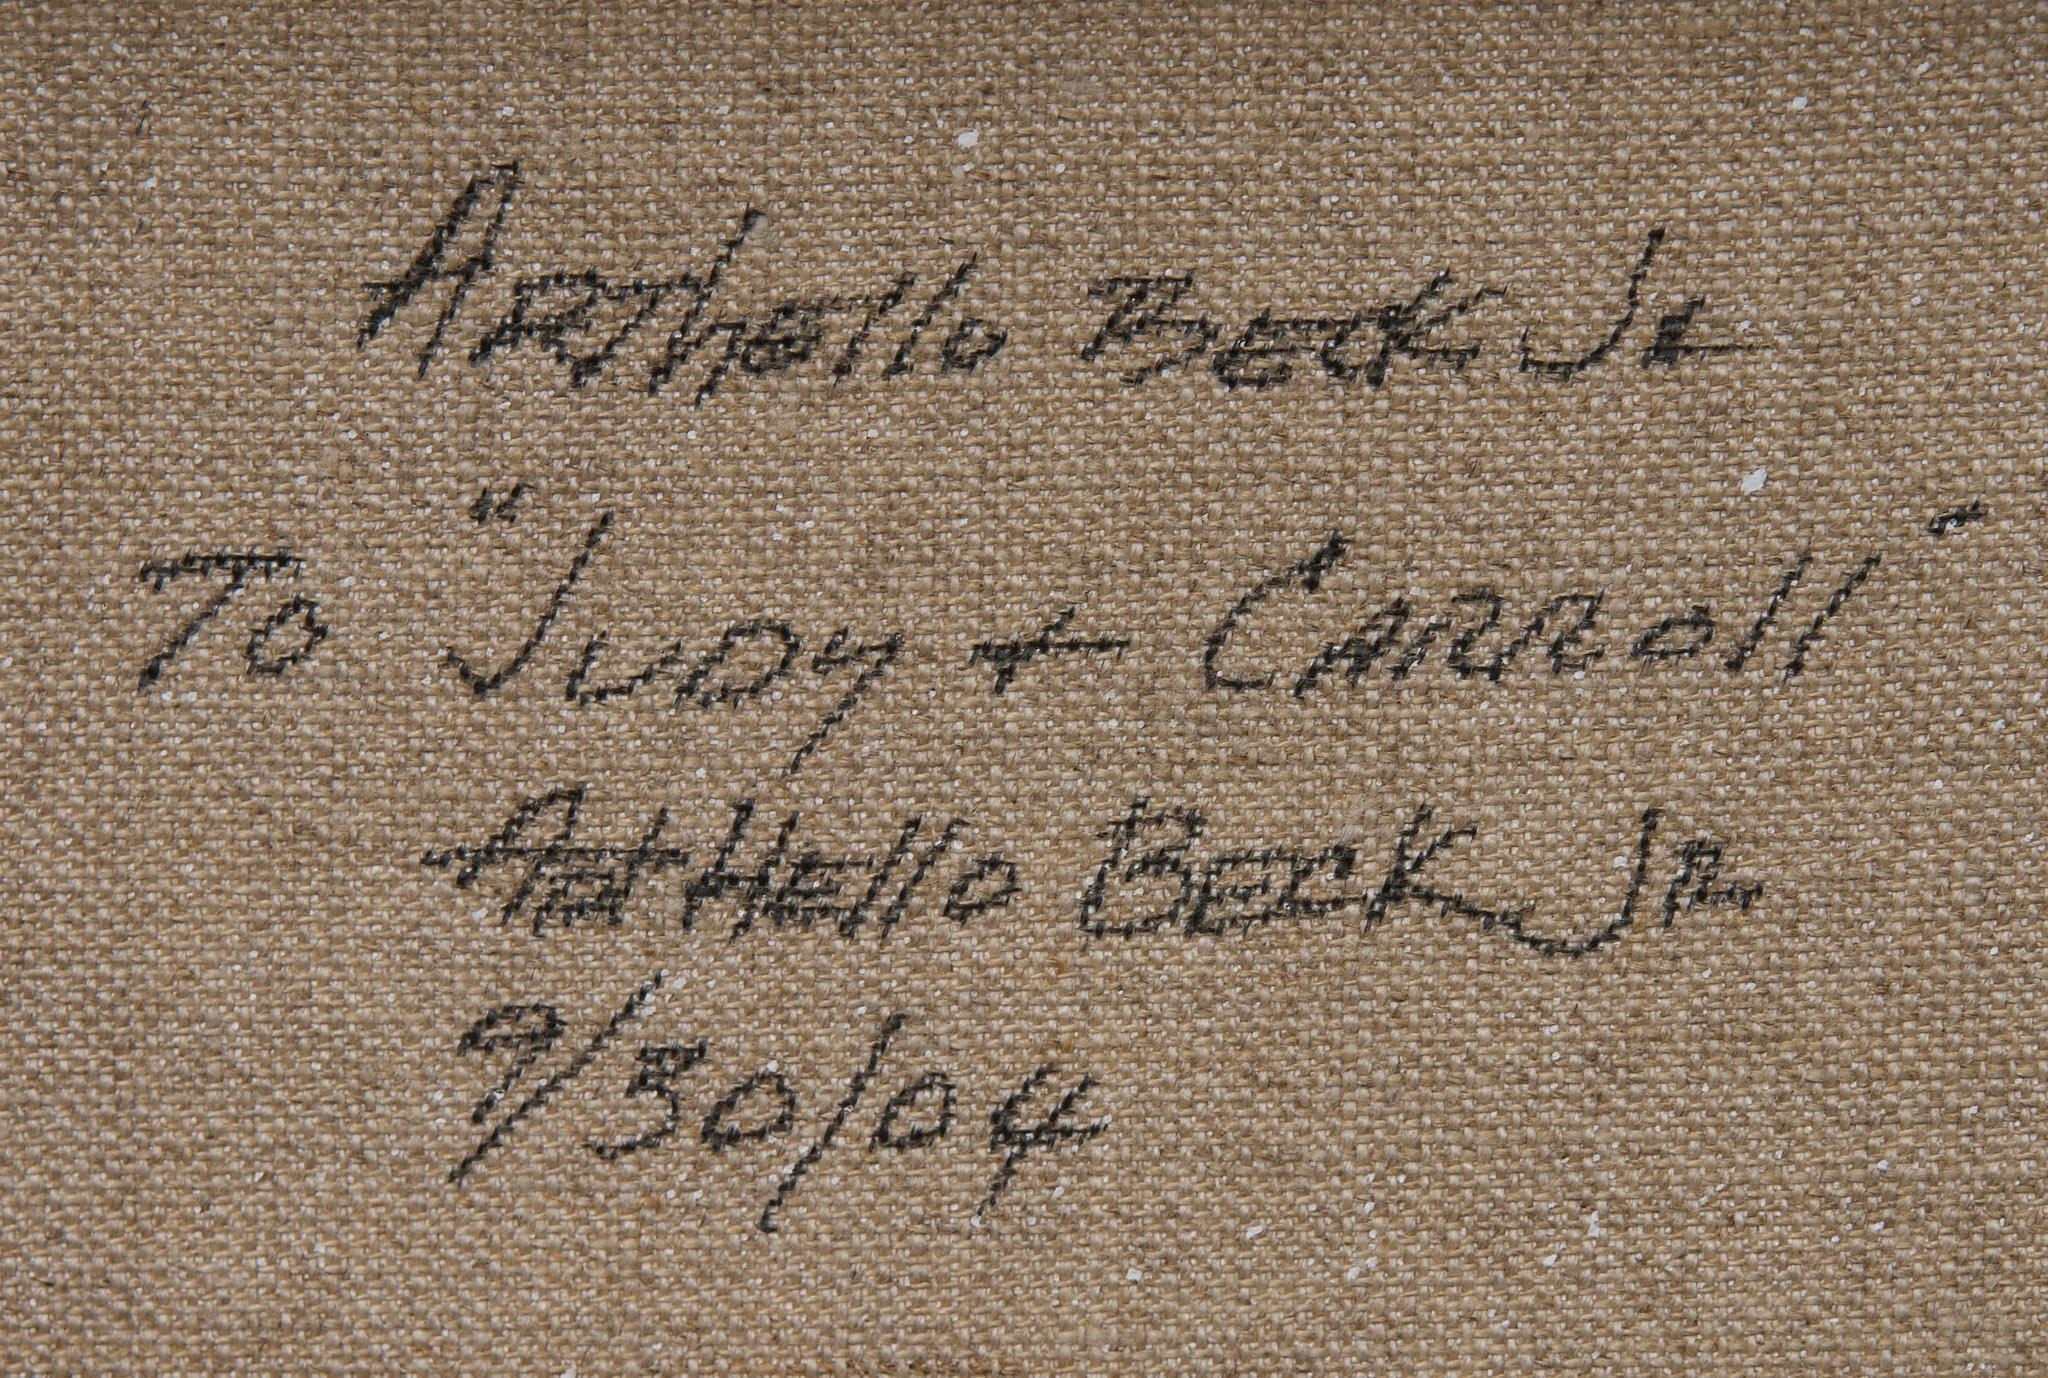 ARThello Beck Jr
To "Judy + Carroll"
ArtHello Beck Jr.
9/30/04